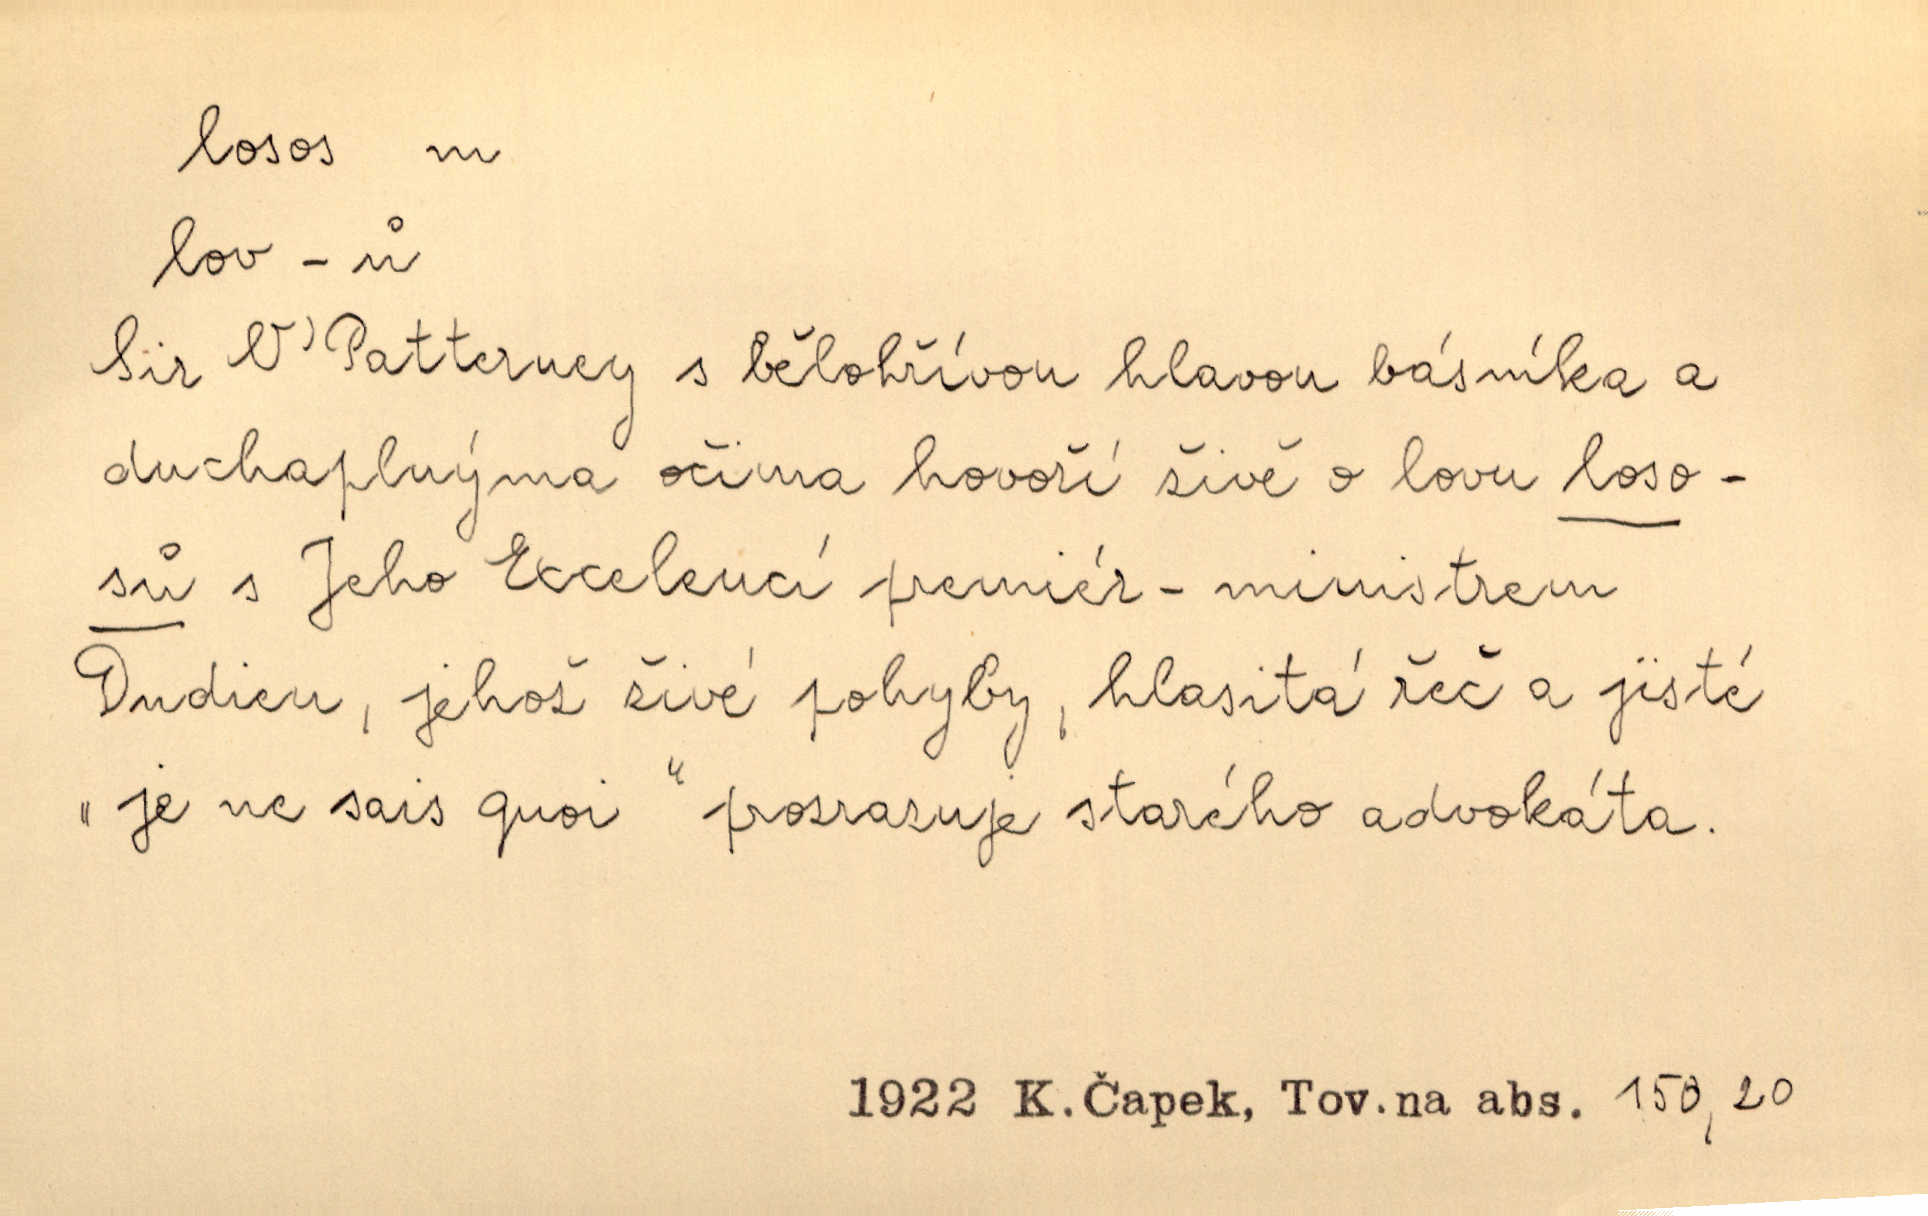 losos m
lov -ů
Sir W' Patterney s bělohřívou hlavou básníka a
duchaplnýma očima hovoří živě o lovu loso-
sů s Jeho Excelencí premiér-ministrem
Dudieu, jehož živé pohyby, hlasitá řeč a jisté
„je ne sais quoi“ prozrazuje starého advokáta.
1922 K.Čapek, Tov.na abs. 150, 20